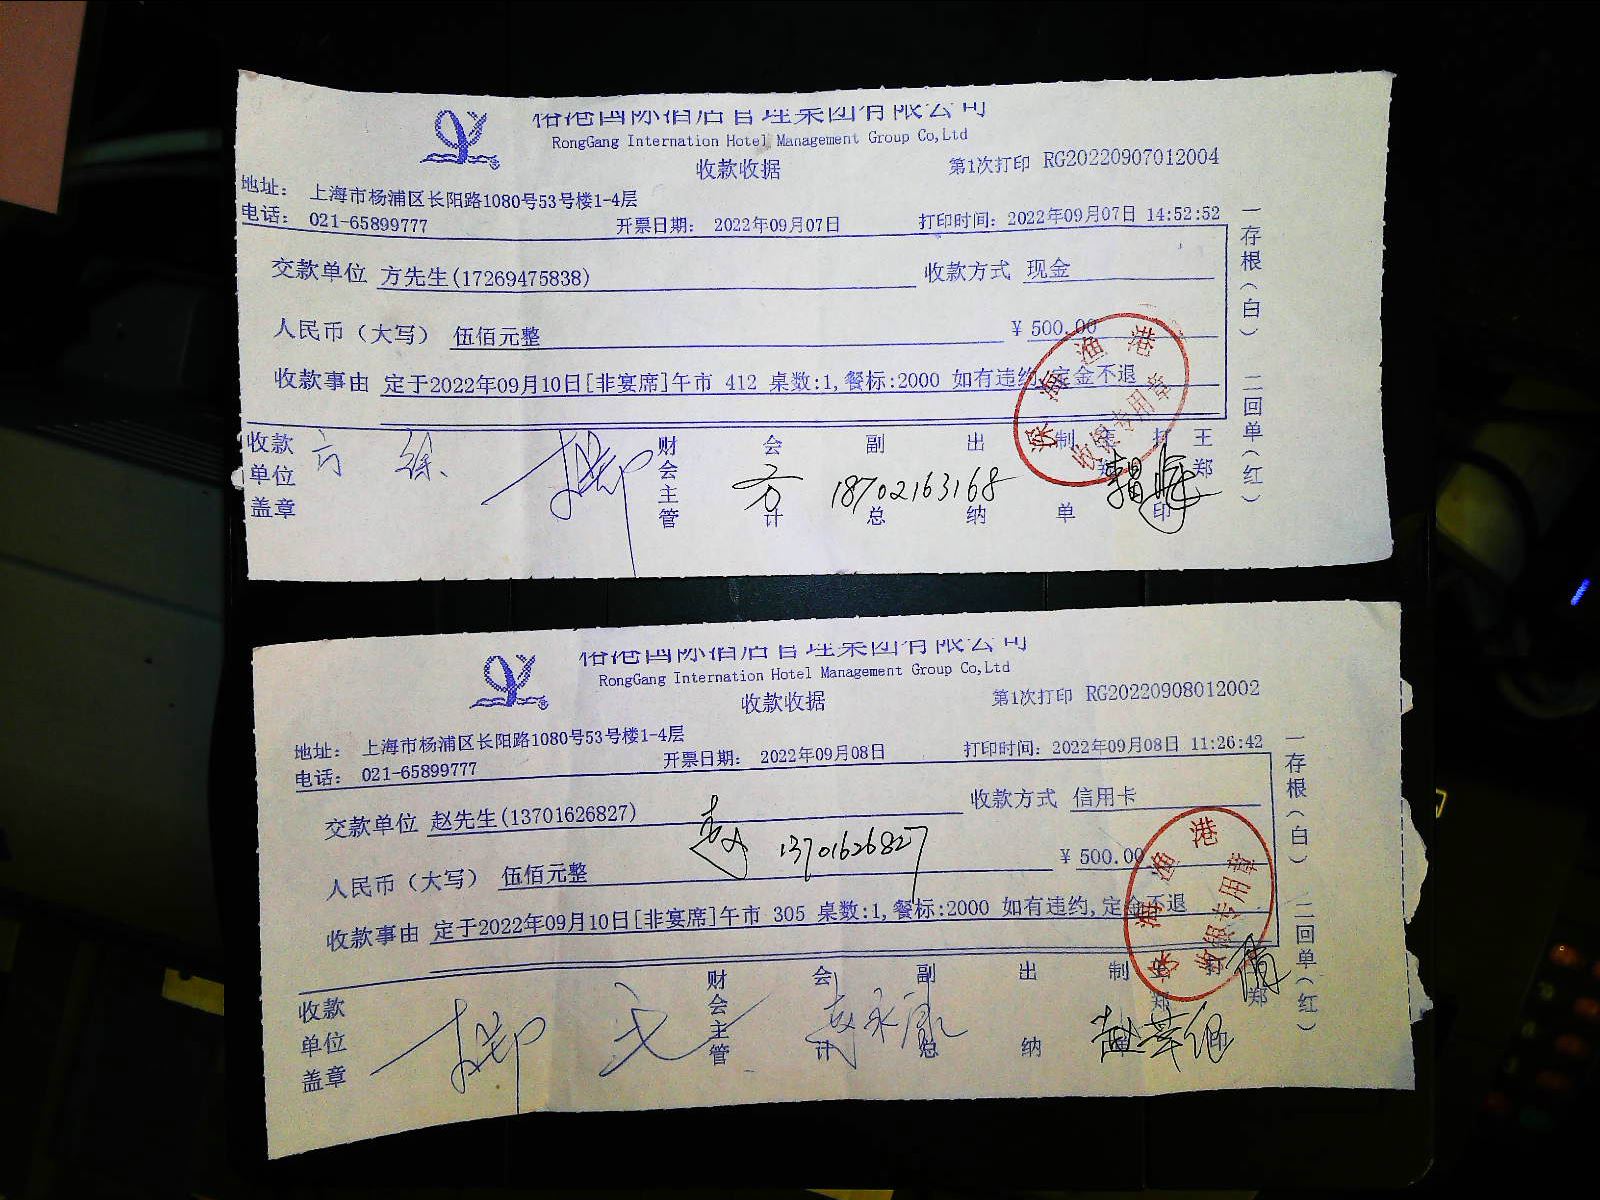 裕港国际酒店管理集团有限公司
RongGang Internation Hotel Management Group Co,Ltd
收款收据 第1次打印 RG20220907012004
地址： 上海市杨浦区长阳路1080号53号楼1-4层
电话： 021-65899777 开票日期： 2022年09月07日 打印时间：2022年09月07日 14:52:52
交款单位 方先生(17269475838) 收款方式 现金
人民币（大写） 伍佰元整 ¥ 500.00
收款事由 定于2022年09月10日[非宴席]午市 412 桌数:1,餐标:2000 如有违约,定金不退
收款单位盖章 财会主管 会计 副总 出纳 制单 打印 王郑
方 18702163168
一存根（白） 二回单（红）
海渔港
收银专用章
裕港国际酒店管理集团有限公司
RongGang Internation Hotel Management Group Co,Ltd
收款收据 第1次打印 RG20220908012002
地址： 上海市杨浦区长阳路1080号53号楼1-4层
电话： 021-65899777 开票日期： 2022年09月08日 打印时间：2022年09月08日 11:26:42
交款单位 赵先生(13701626827) 收款方式 信用卡
赵 13701626827
人民币（大写） 伍佰元整 ¥ 500.00
收款事由 定于2022年09月10日[非宴席]午市 305 桌数:1,餐标:2000 如有违约,定金不退
收款单位盖章 财会主管 会计 副总 出纳 制 郑
赵永康
一存根（白） 二回单（红）
海渔港
收银专用章